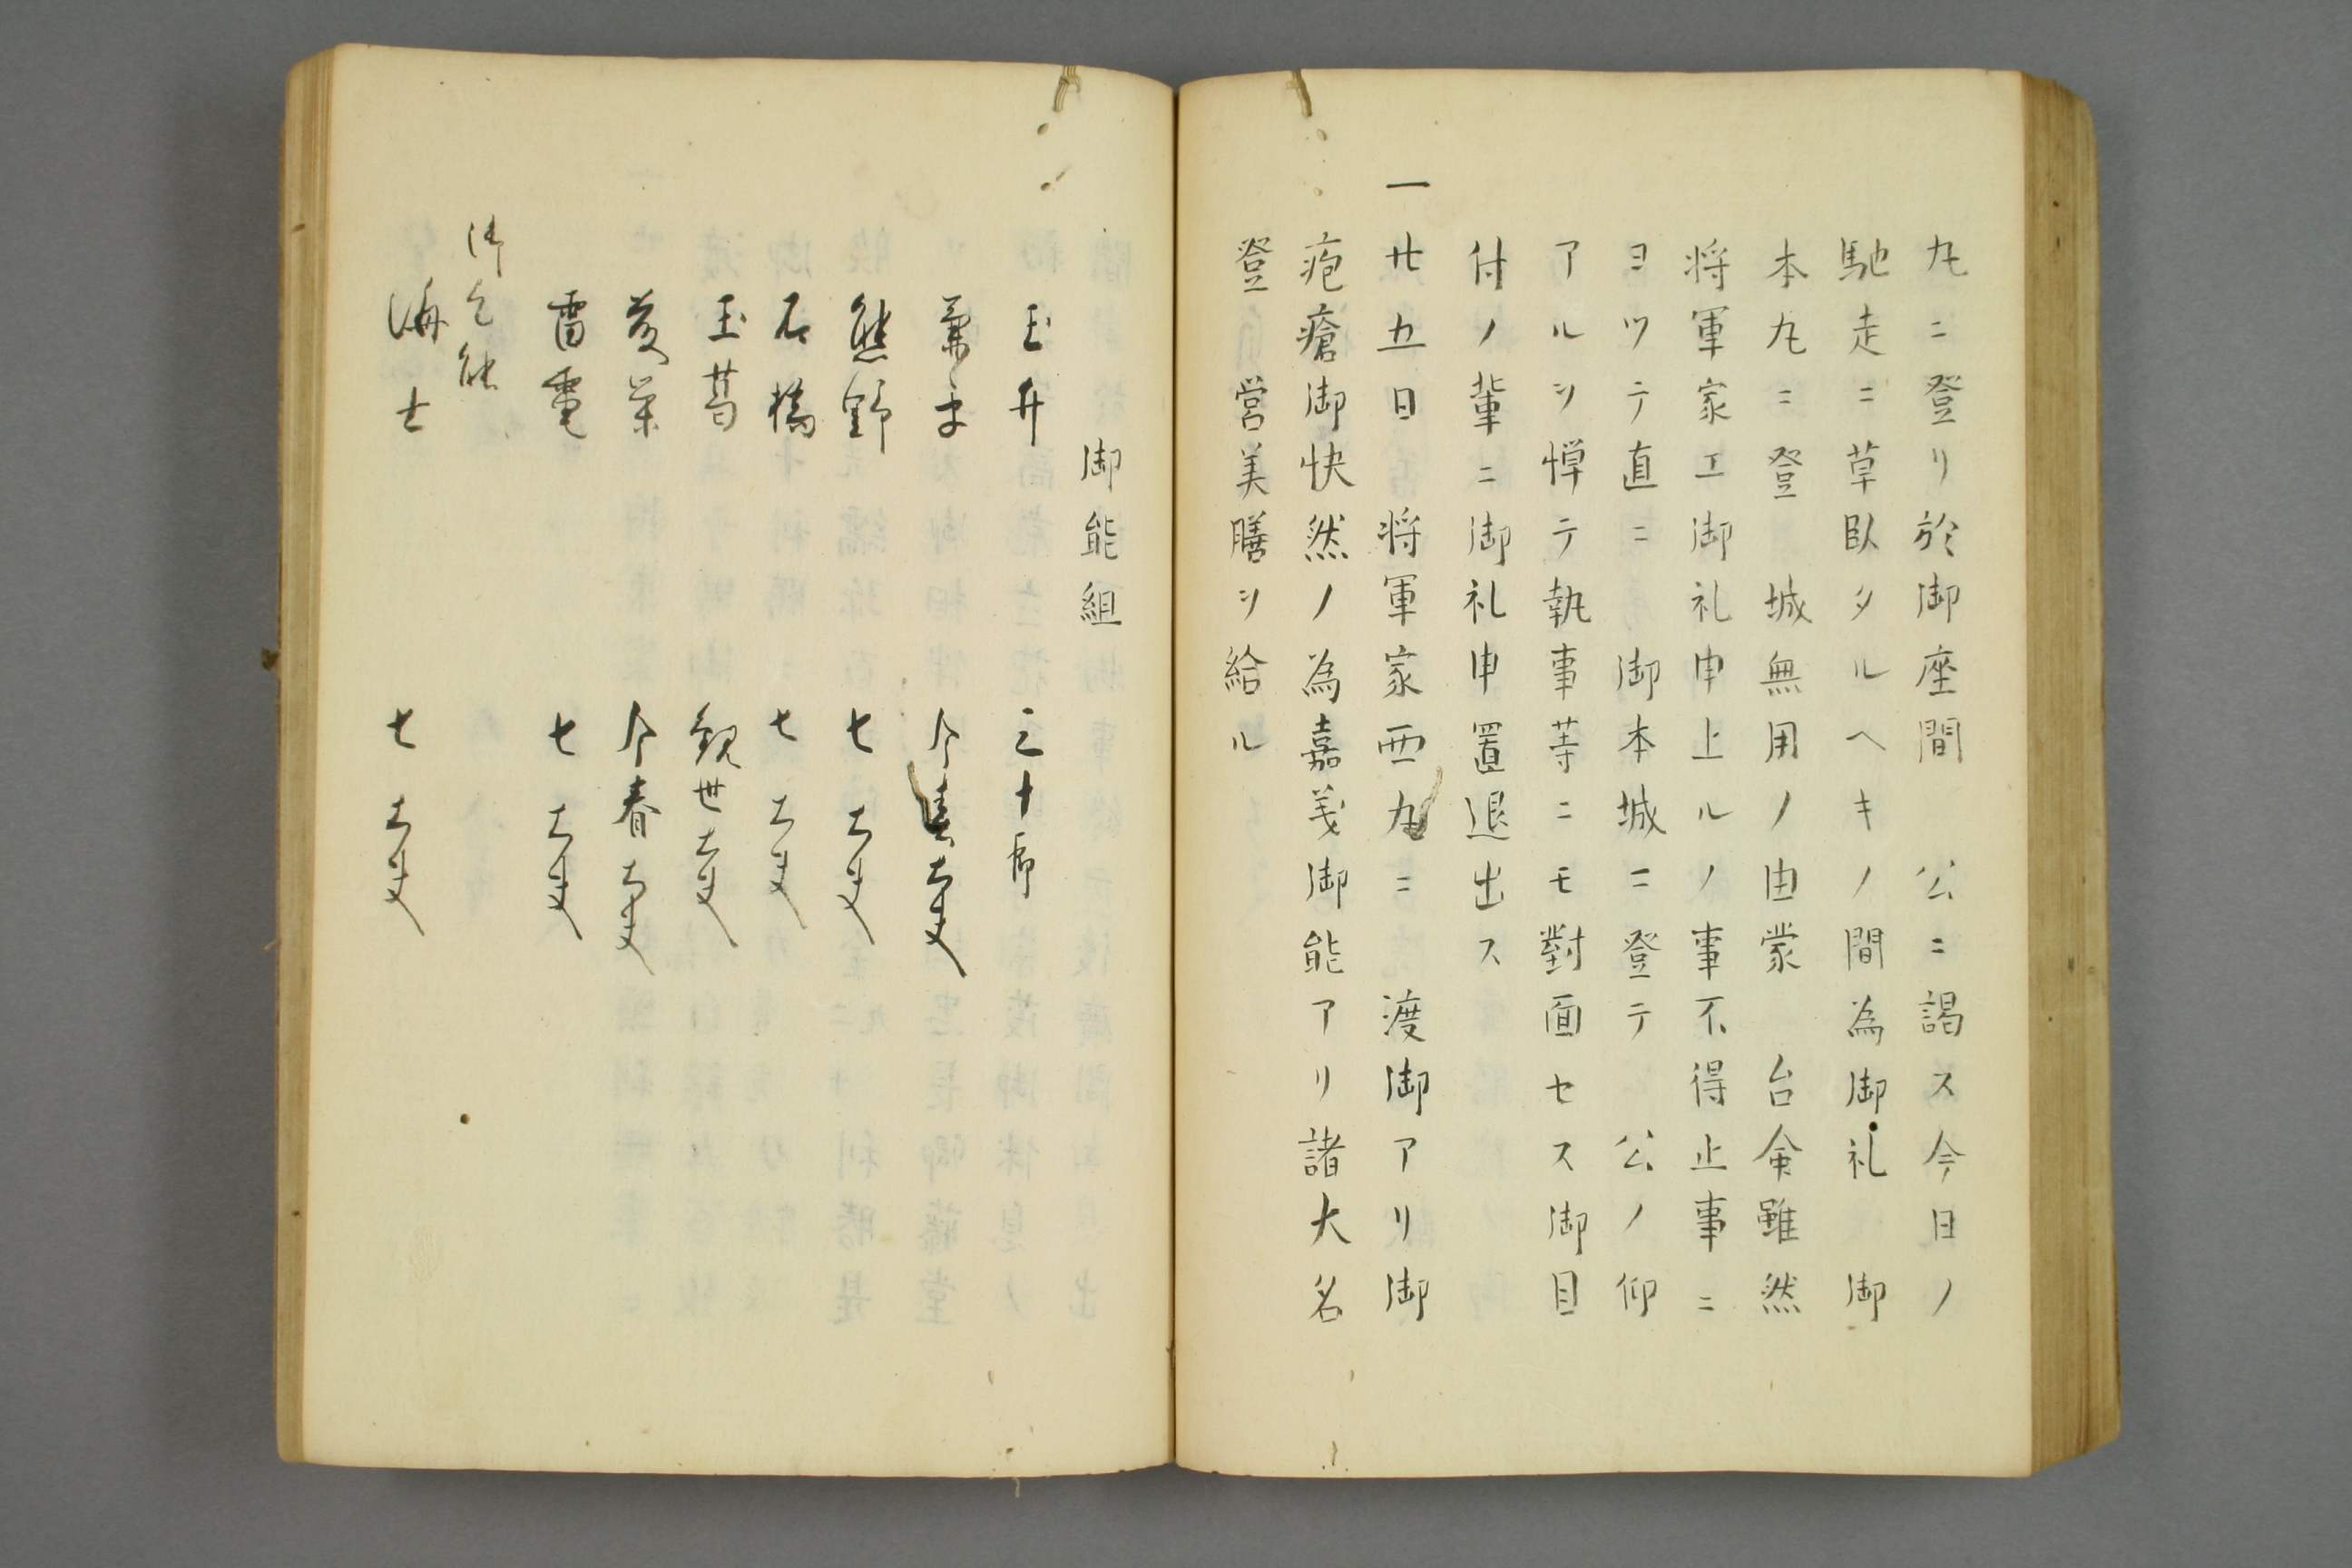 丸ニ登リ於御座間　公ニ謁ス今日ノ
馳走ニ草臥タルヘキノ間為御礼　御
本丸ニ登　城無用ノ由蒙　台命雖然
将軍家エ御礼申上ルノ事不得止事ニ
ヨツテ直ニ　御本城ニ登テ　公ノ仰
アルシ憚テ執事等ニモ對面セス御目
付ノ輩ニ御礼申置退出ス
一廿五日　将軍家西丸ニ　渡御アリ御
疱瘡御快然ノ為嘉義御能アリ諸大名
登　営美膳シ給ル
御能組
玉井　三十郎
兼平　今春大夫
熊野　七大夫
石橋　七大夫
玉葛　観世大夫
葵　今春大夫
雷電　七大夫
御乞能
海士　七大夫